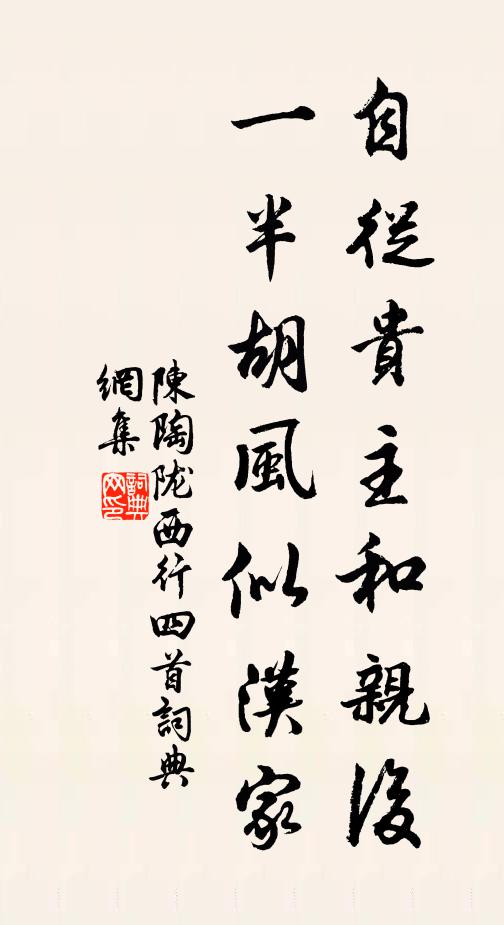 自從貴主和親後
一半胡風似漢家
陳陶陇西行四首詞典
網集
詞典網印